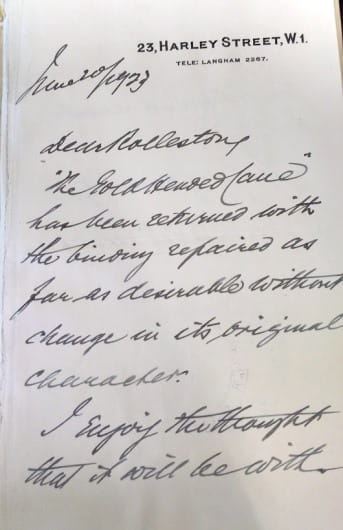 23, HARLEY STREET, W.1.
TELE: LANGHAM 2267.
June 20/1923
Dear Rolleston,
"The Gold Headed Cane"
has been returned with
the binding repaired as
far as desirable without
change in its original
character.
I enjoy the thought
that it will be with